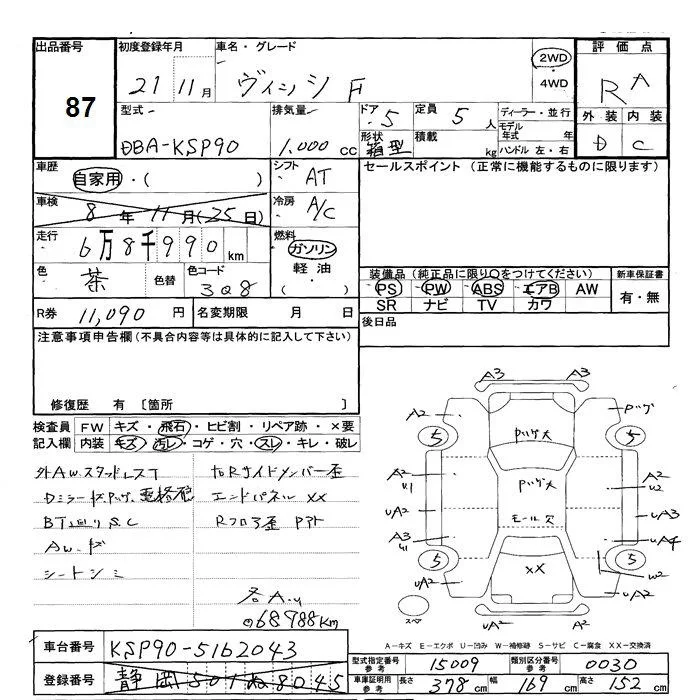 出品番号
87
初度登録年月
21 11月
車名・グレード
ヴィッツ F
2WD
・
4WD
評価点
RA
外装 内装
D C
型式
DBA-KSP90
排気量
1.000 cc
ドア 5
定員 5人
形状 箱型
積載 kg
ディーラー・並行
モデル年式 年
ハンドル 左・右
車歴
自家用・( )
シフト
AT
セールスポイント (正常に機能するものに限ります)
車検
8年 11月(25日)
冷房
A/C
走行
6万8千990km
燃料
ガソリン
軽油
( )
色
茶
色替
色コード
3Q8
装備品(純正品に限り○をつけてください)
PS PW ABS エアB AW
SR ナビ TV カワ
新車保証書
有・無
R券 11,090 円
名変期限 月 日
後日品
注意事項申告欄(不具合内容等は具体的に記入して下さい)
修復歴 有 〔箇所
検査員記入欄
FW キズ・飛石・ヒビ割・リペア跡・×要
内装 キズ・汚レ・コゲ・穴・スレ・キレ・破レ
外AW.スタッドレスT
BT廻りS.C
シートシミ
エンドパネル XX
Rフロア歪
68988Km
A3 A3
A2
5 5
A2
A2
W2
uA2
uA3
A3
uA4
5 5
uA2
W2
uA2
XX
モール欠
スペア
uA2 A2
A-キズ E-エクボ U-凹み W-補修跡 S-サビ C-腐食 XX-交換済
車台番号
KSP90-5162043
登録番号
静岡501ね8045
型式指定番号 参考
15009
類別区分番号 参考
0030
車庫証明用 参考
長さ 378cm
幅 169cm
高さ 152cm